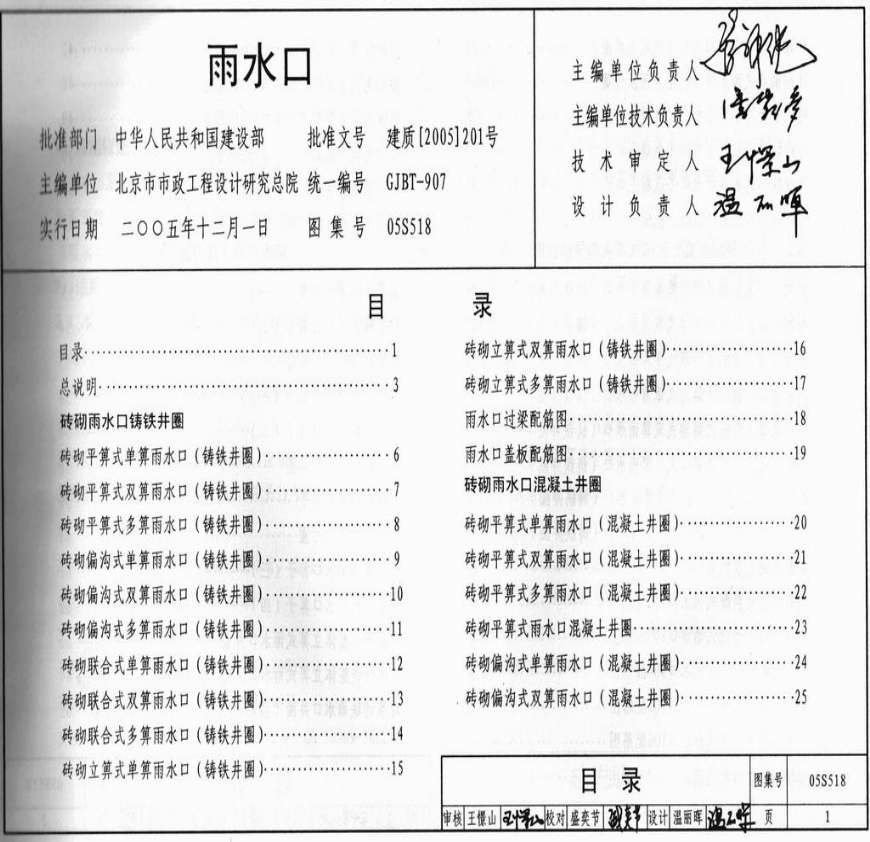 雨水口
批准部门 中华人民共和国建设部 批准文号 建质[2005]201号
主编单位 北京市市政工程设计研究总院 统一编号 GJBT-907
实行日期 二〇〇五年十二月一日 图集号 05S518
主编单位负责人
主编单位技术负责人
技术审定人 王憬山
设计负责人 温丽晖
目 录
目录 1
总说明 3
砖砌雨水口铸铁井圈
砖砌平箅式单箅雨水口(铸铁井圈) 6
砖砌平箅式双箅雨水口(铸铁井圈) 7
砖砌平箅式多箅雨水口(铸铁井圈) 8
砖砌偏沟式单箅雨水口(铸铁井圈) 9
砖砌偏沟式双箅雨水口(铸铁井圈) 10
砖砌偏沟式多箅雨水口(铸铁井圈) 11
砖砌联合式单箅雨水口(铸铁井圈) 12
砖砌联合式双箅雨水口(铸铁井圈) 13
砖砌联合式多箅雨水口(铸铁井圈) 14
砖砌立箅式单箅雨水口(铸铁井圈) 15
砖砌立箅式双箅雨水口(铸铁井圈) 16
砖砌立箅式多箅雨水口(铸铁井圈) 17
雨水口过梁配筋图 18
雨水口盖板配筋图 19
砖砌雨水口混凝土井圈
砖砌平箅式单箅雨水口(混凝土井圈) 20
砖砌平箅式双箅雨水口(混凝土井圈) 21
砖砌平箅式多箅雨水口(混凝土井圈) 22
砖砌平箅式雨水口混凝土井圈 23
砖砌偏沟式单箅雨水口(混凝土井圈) 24
砖砌偏沟式双箅雨水口(混凝土井圈) 25
目 录 图集号 05S518
审核 王憬山 王憬山 校对 盛奕节 盛奕节 设计 温丽晖 温丽晖 页 1